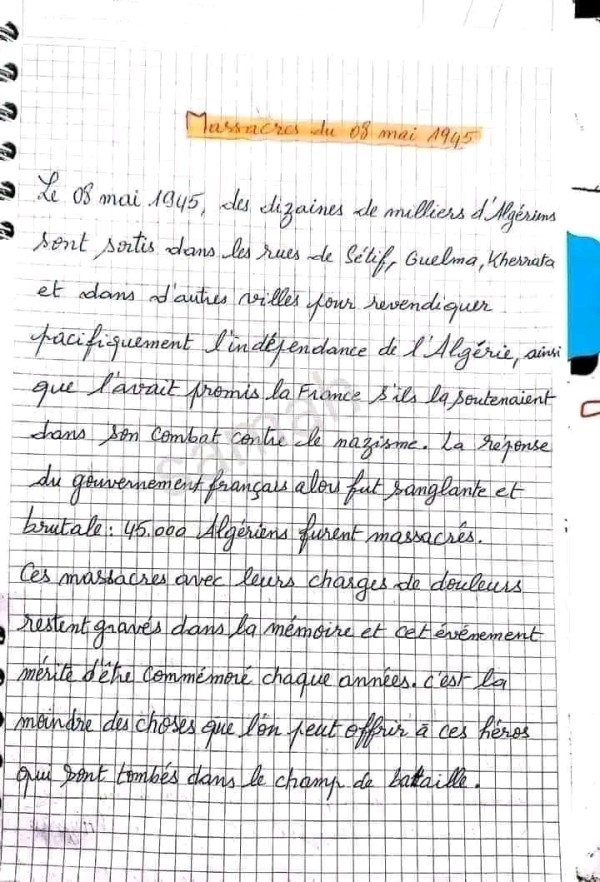 Massacres du 08 mai 1945
Le 08 mai 1945, des dizaines de milliers d'Algériens
sont sortis dans les rues de Sétif, Guelma, Kherrata
et dans d'autres villes pour revendiquer
pacifiquement l'indépendance de l'Algérie, ainsi
que l'avait promis la France s'ils la soutenaient
dans son combat contre le nazisme. La réponse
du gouvernement français alors fut sanglante et
brutale : 45.000 Algériens furent massacrés.
Ces massacres avec leurs charges de douleurs
restent gravés dans la mémoire et cet événement
mérite d'être commémoré chaque années. c'est la
moindre des choses que l'on peut offrir à ces héros
qui sont tombés dans le champ de bataille.